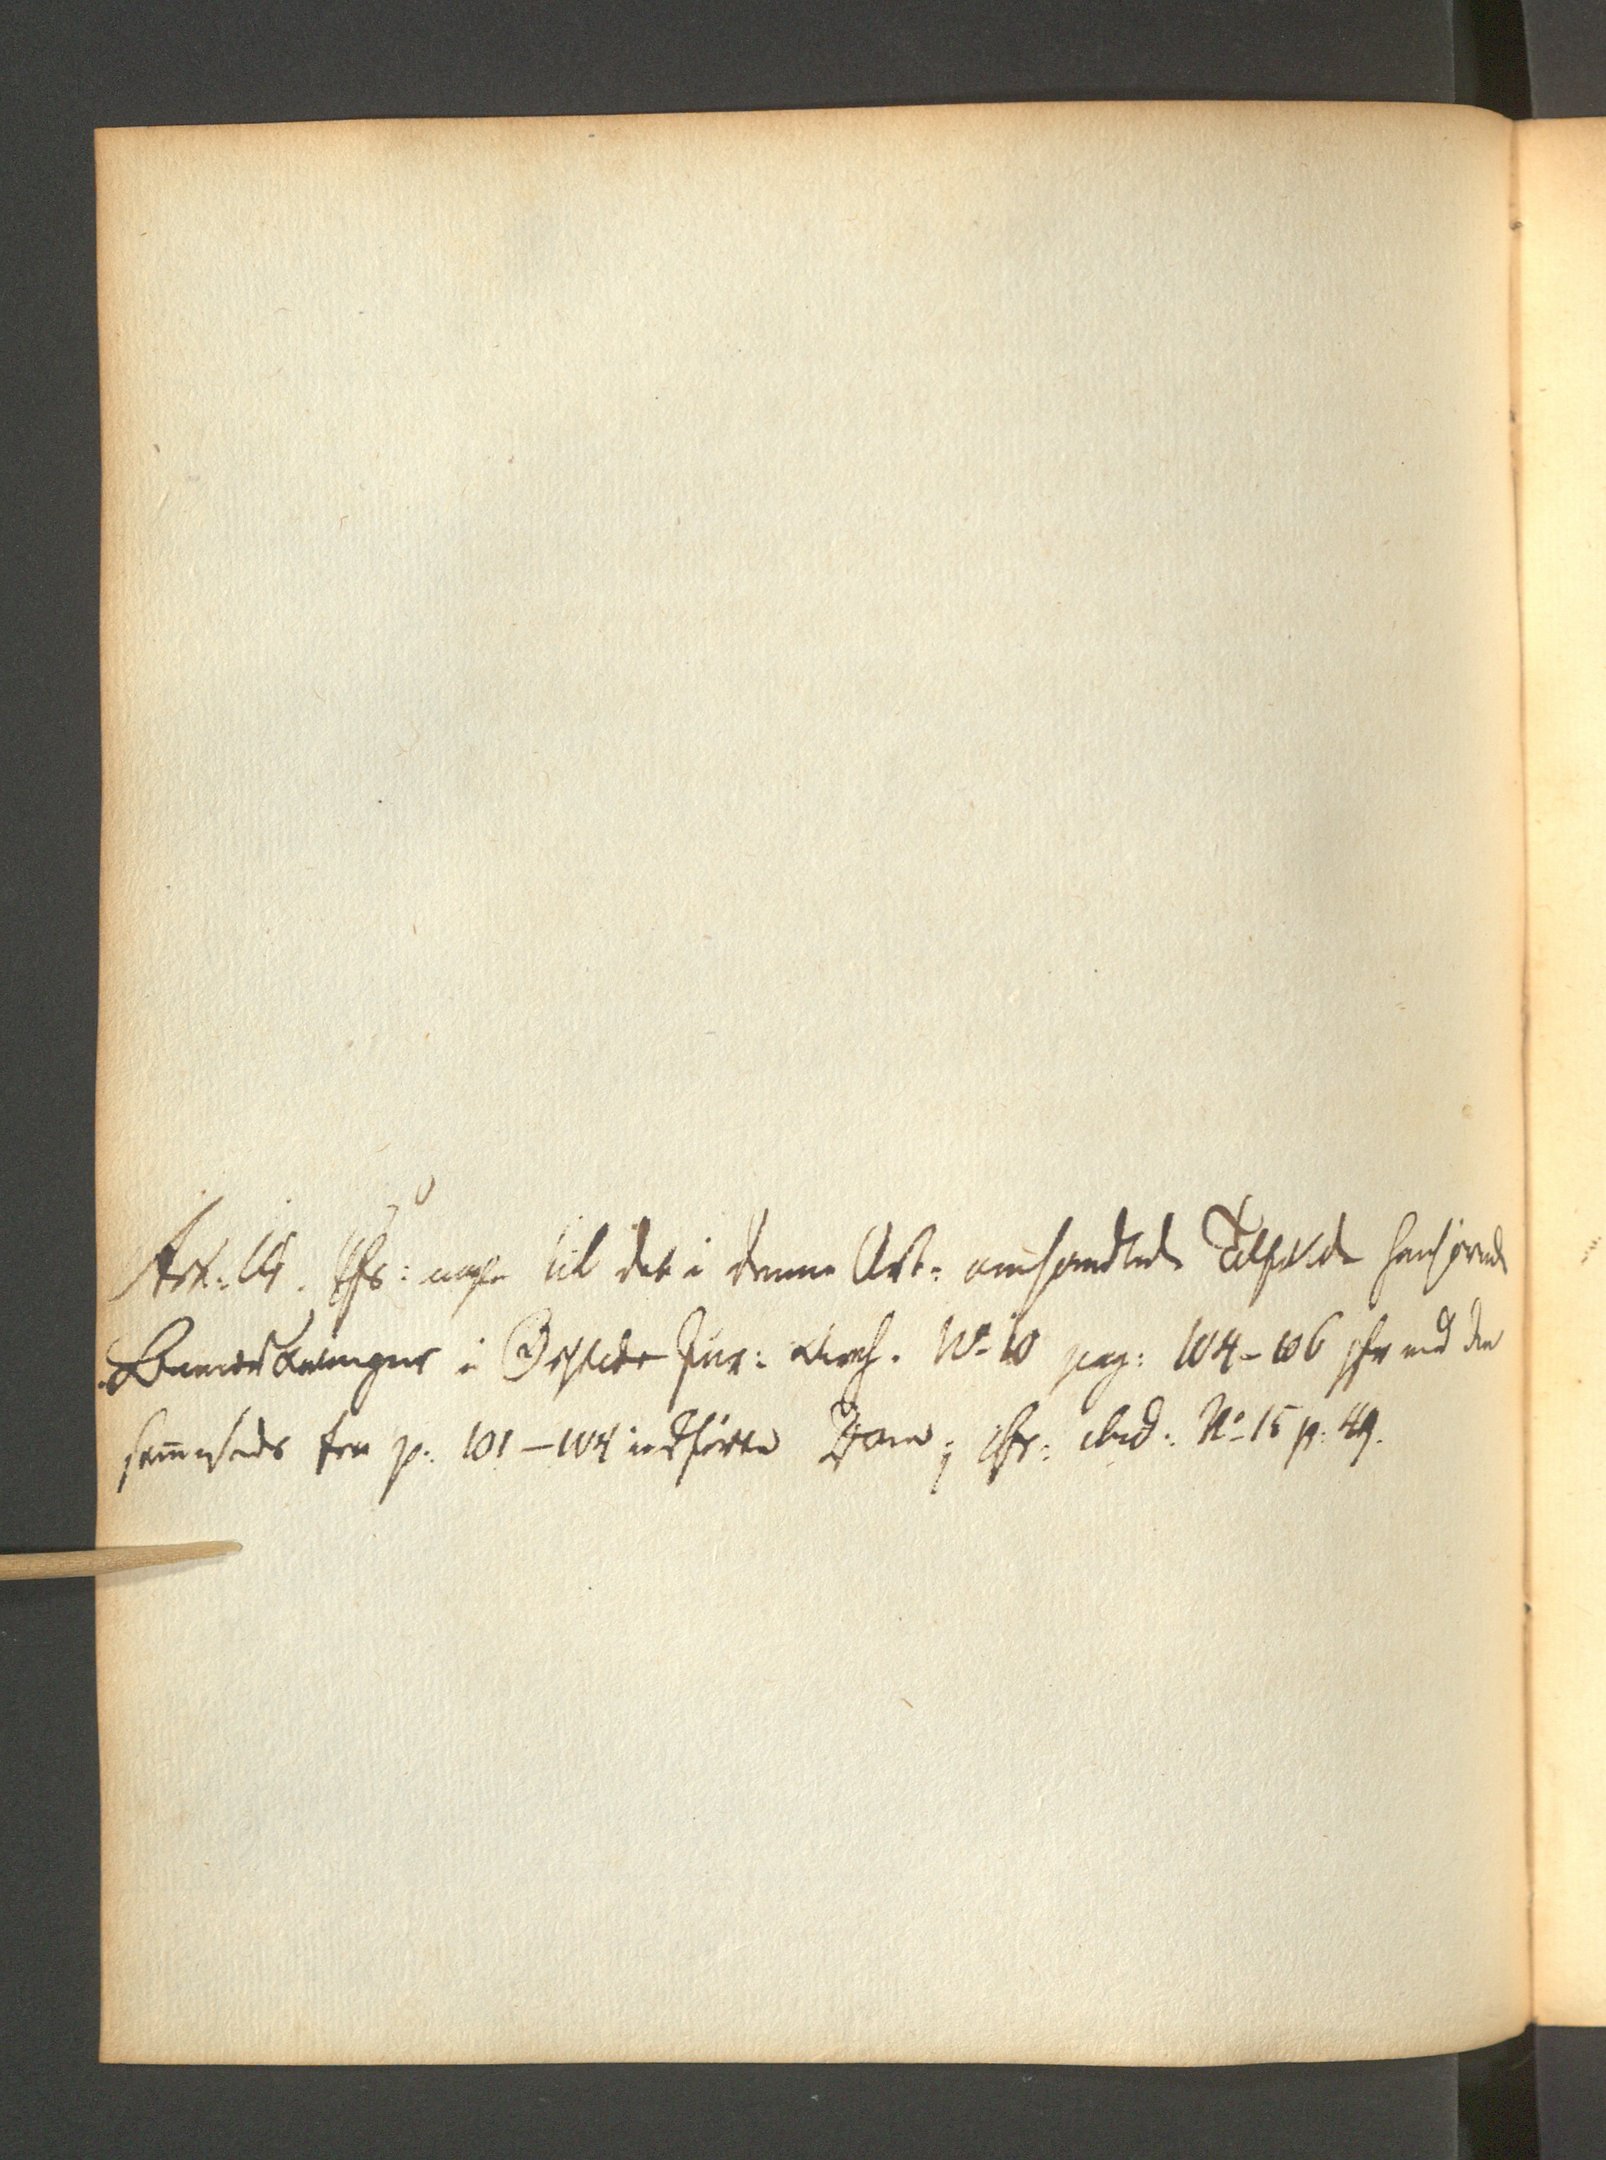 Art: 14. Cfr: nogle til det i denne Art: omhandlede Tilfælde henhørende
Bemærkninger i Ørsteds Jur: Arch. No 10 pag: 104-106 jfr med den
sammesteds fra p: 101-104 indførte Dom; cfr: ibid: No 15 p: 49.